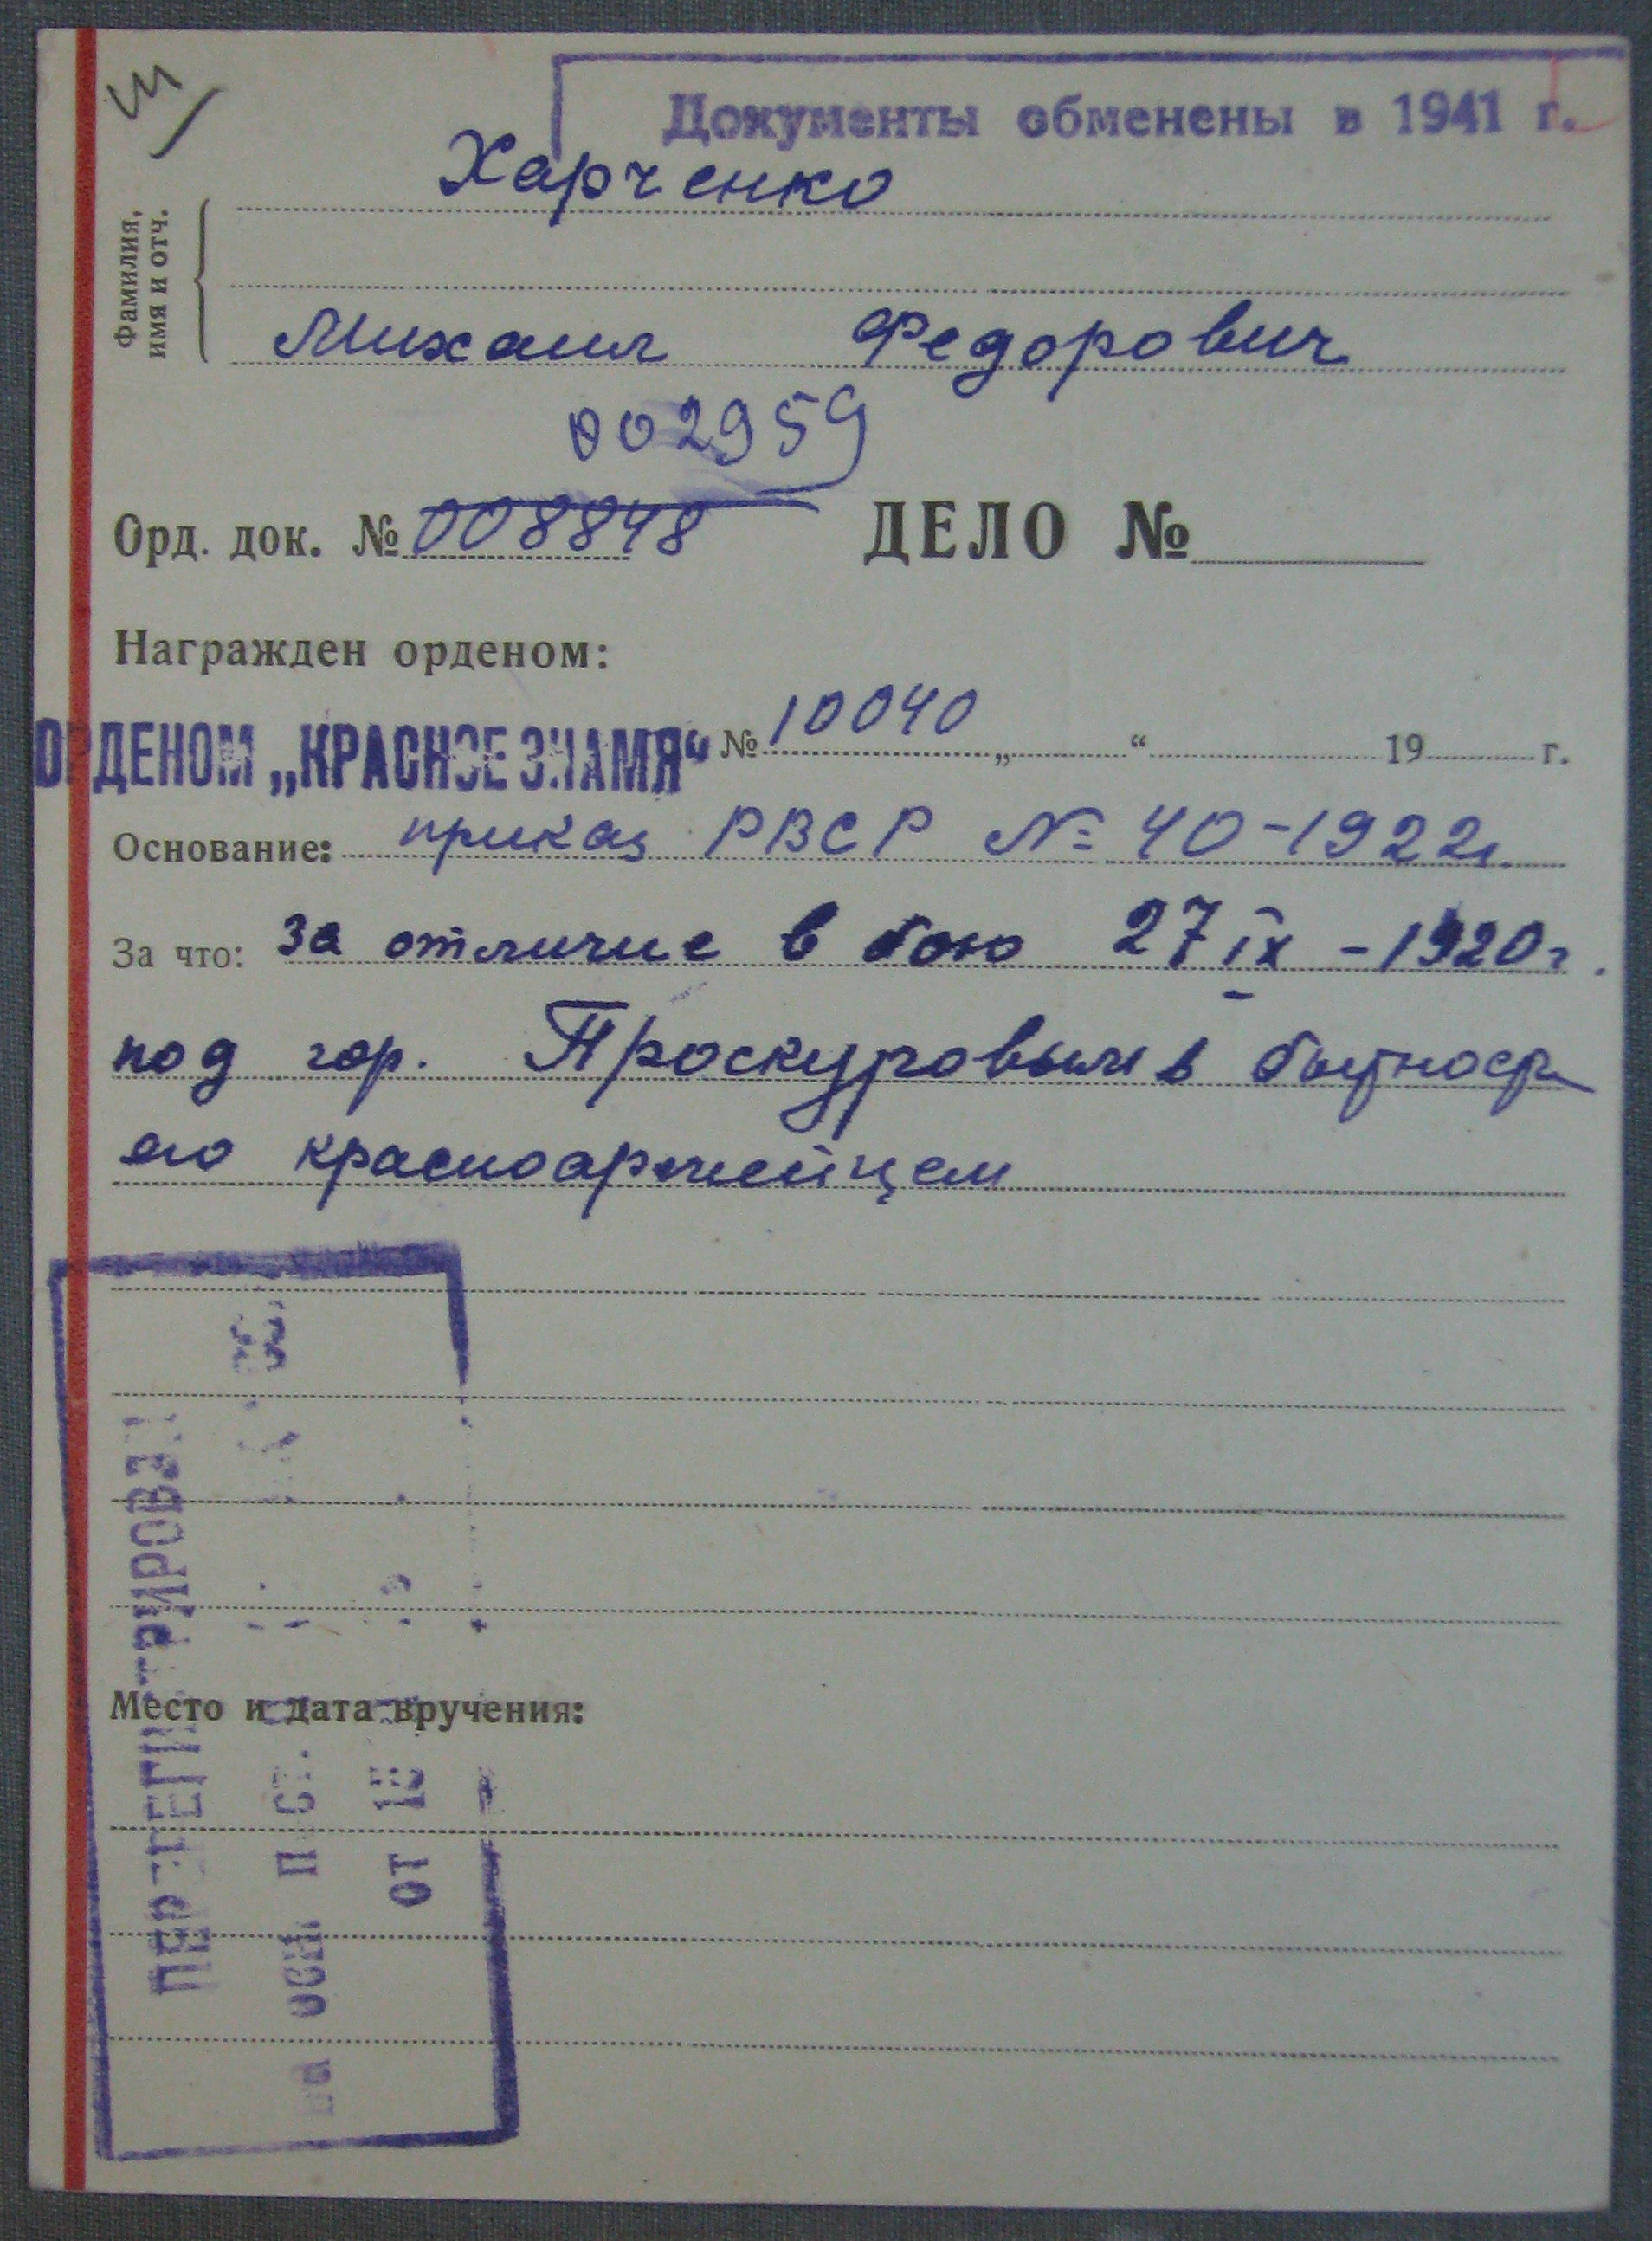 Документы обменены в 1941 г.
Харченко
Фамилия,
имя и отч.
Михаил Федорович
002959
Орд. док. № 008848 ДЕЛО №
Награжден орденом:
ОРДЕНОМ „КРАСНОЕ ЗНАМЯ“ № 10040 „ “ 19 г.
Основание: приказ РВСР № 40-1922г.
За что: за отличие в бою 27 IX - 1920г.
под гор. Проскуровым в бытность
его красноармейцем
Место и дата вручения:
от 18